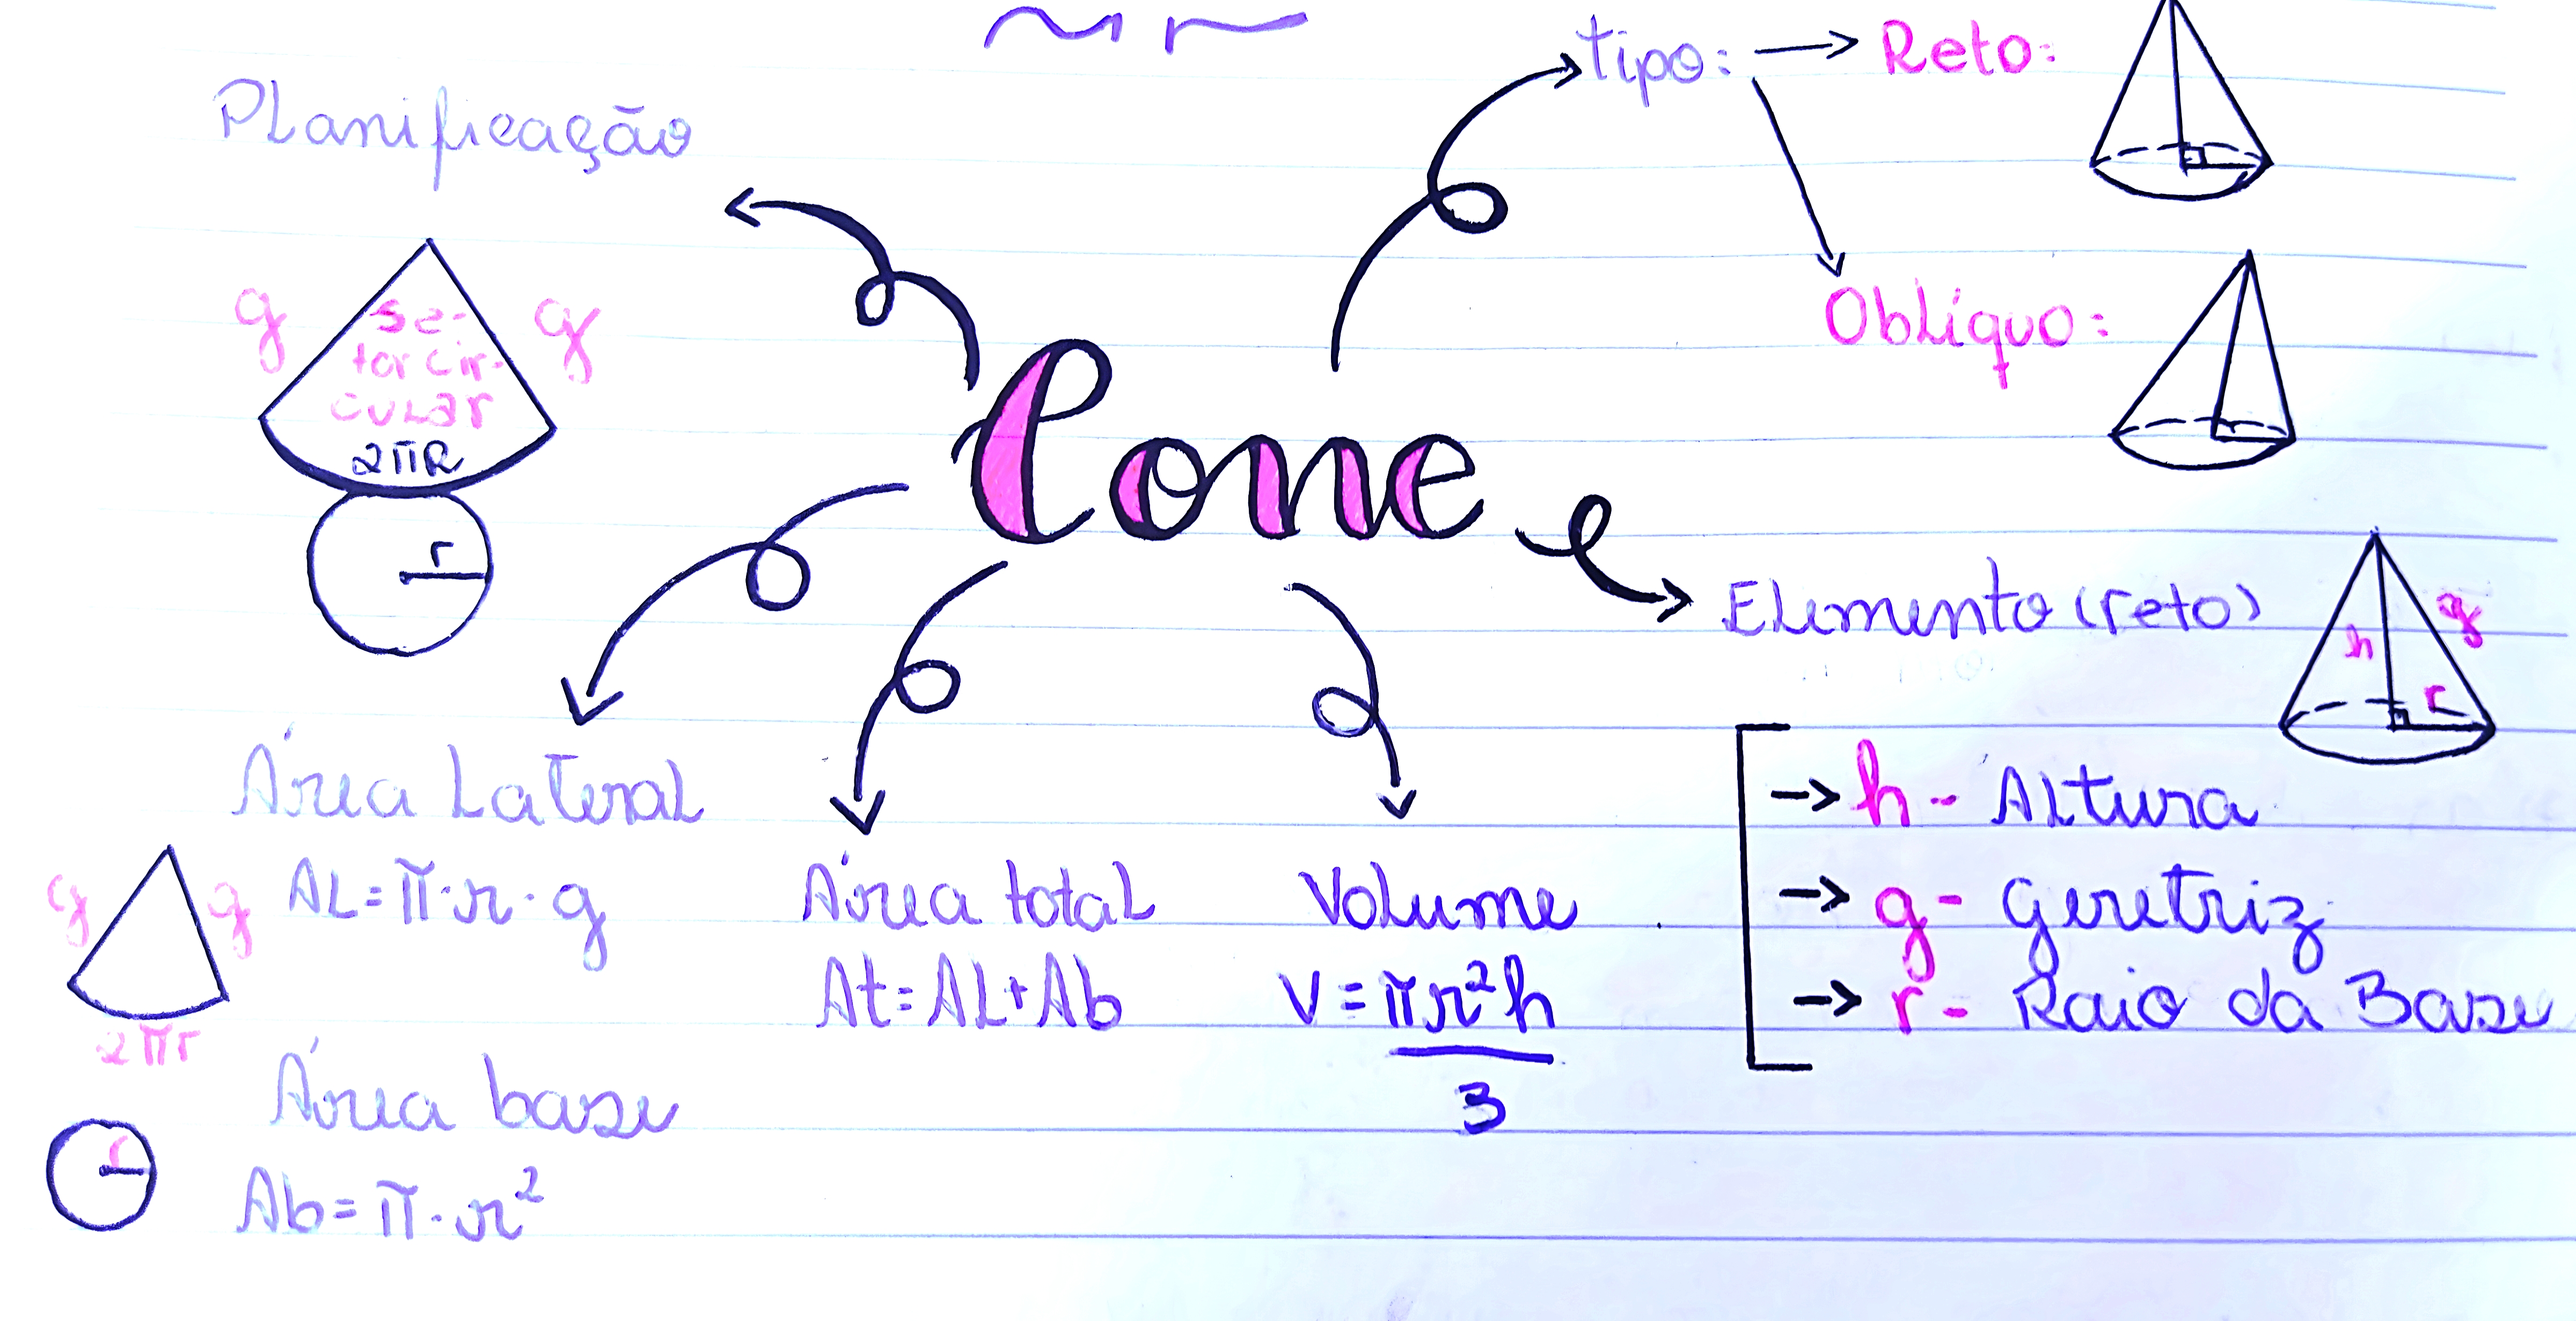 Planificação
g
se-
tor cir-
cular
g
2πR
r
tipo:
Reto:
Oblíquo:
Cone
Elemento (reto)
h
g
r
→ h - Altura
→ g - Geretriz
→ r - Raio da Base
Área Lateral
AL = π · r · g
g
g
2πr
Área base
r
Ab = π · r²
Área total
At = AL + Ab
Volume
V = πr²h
3